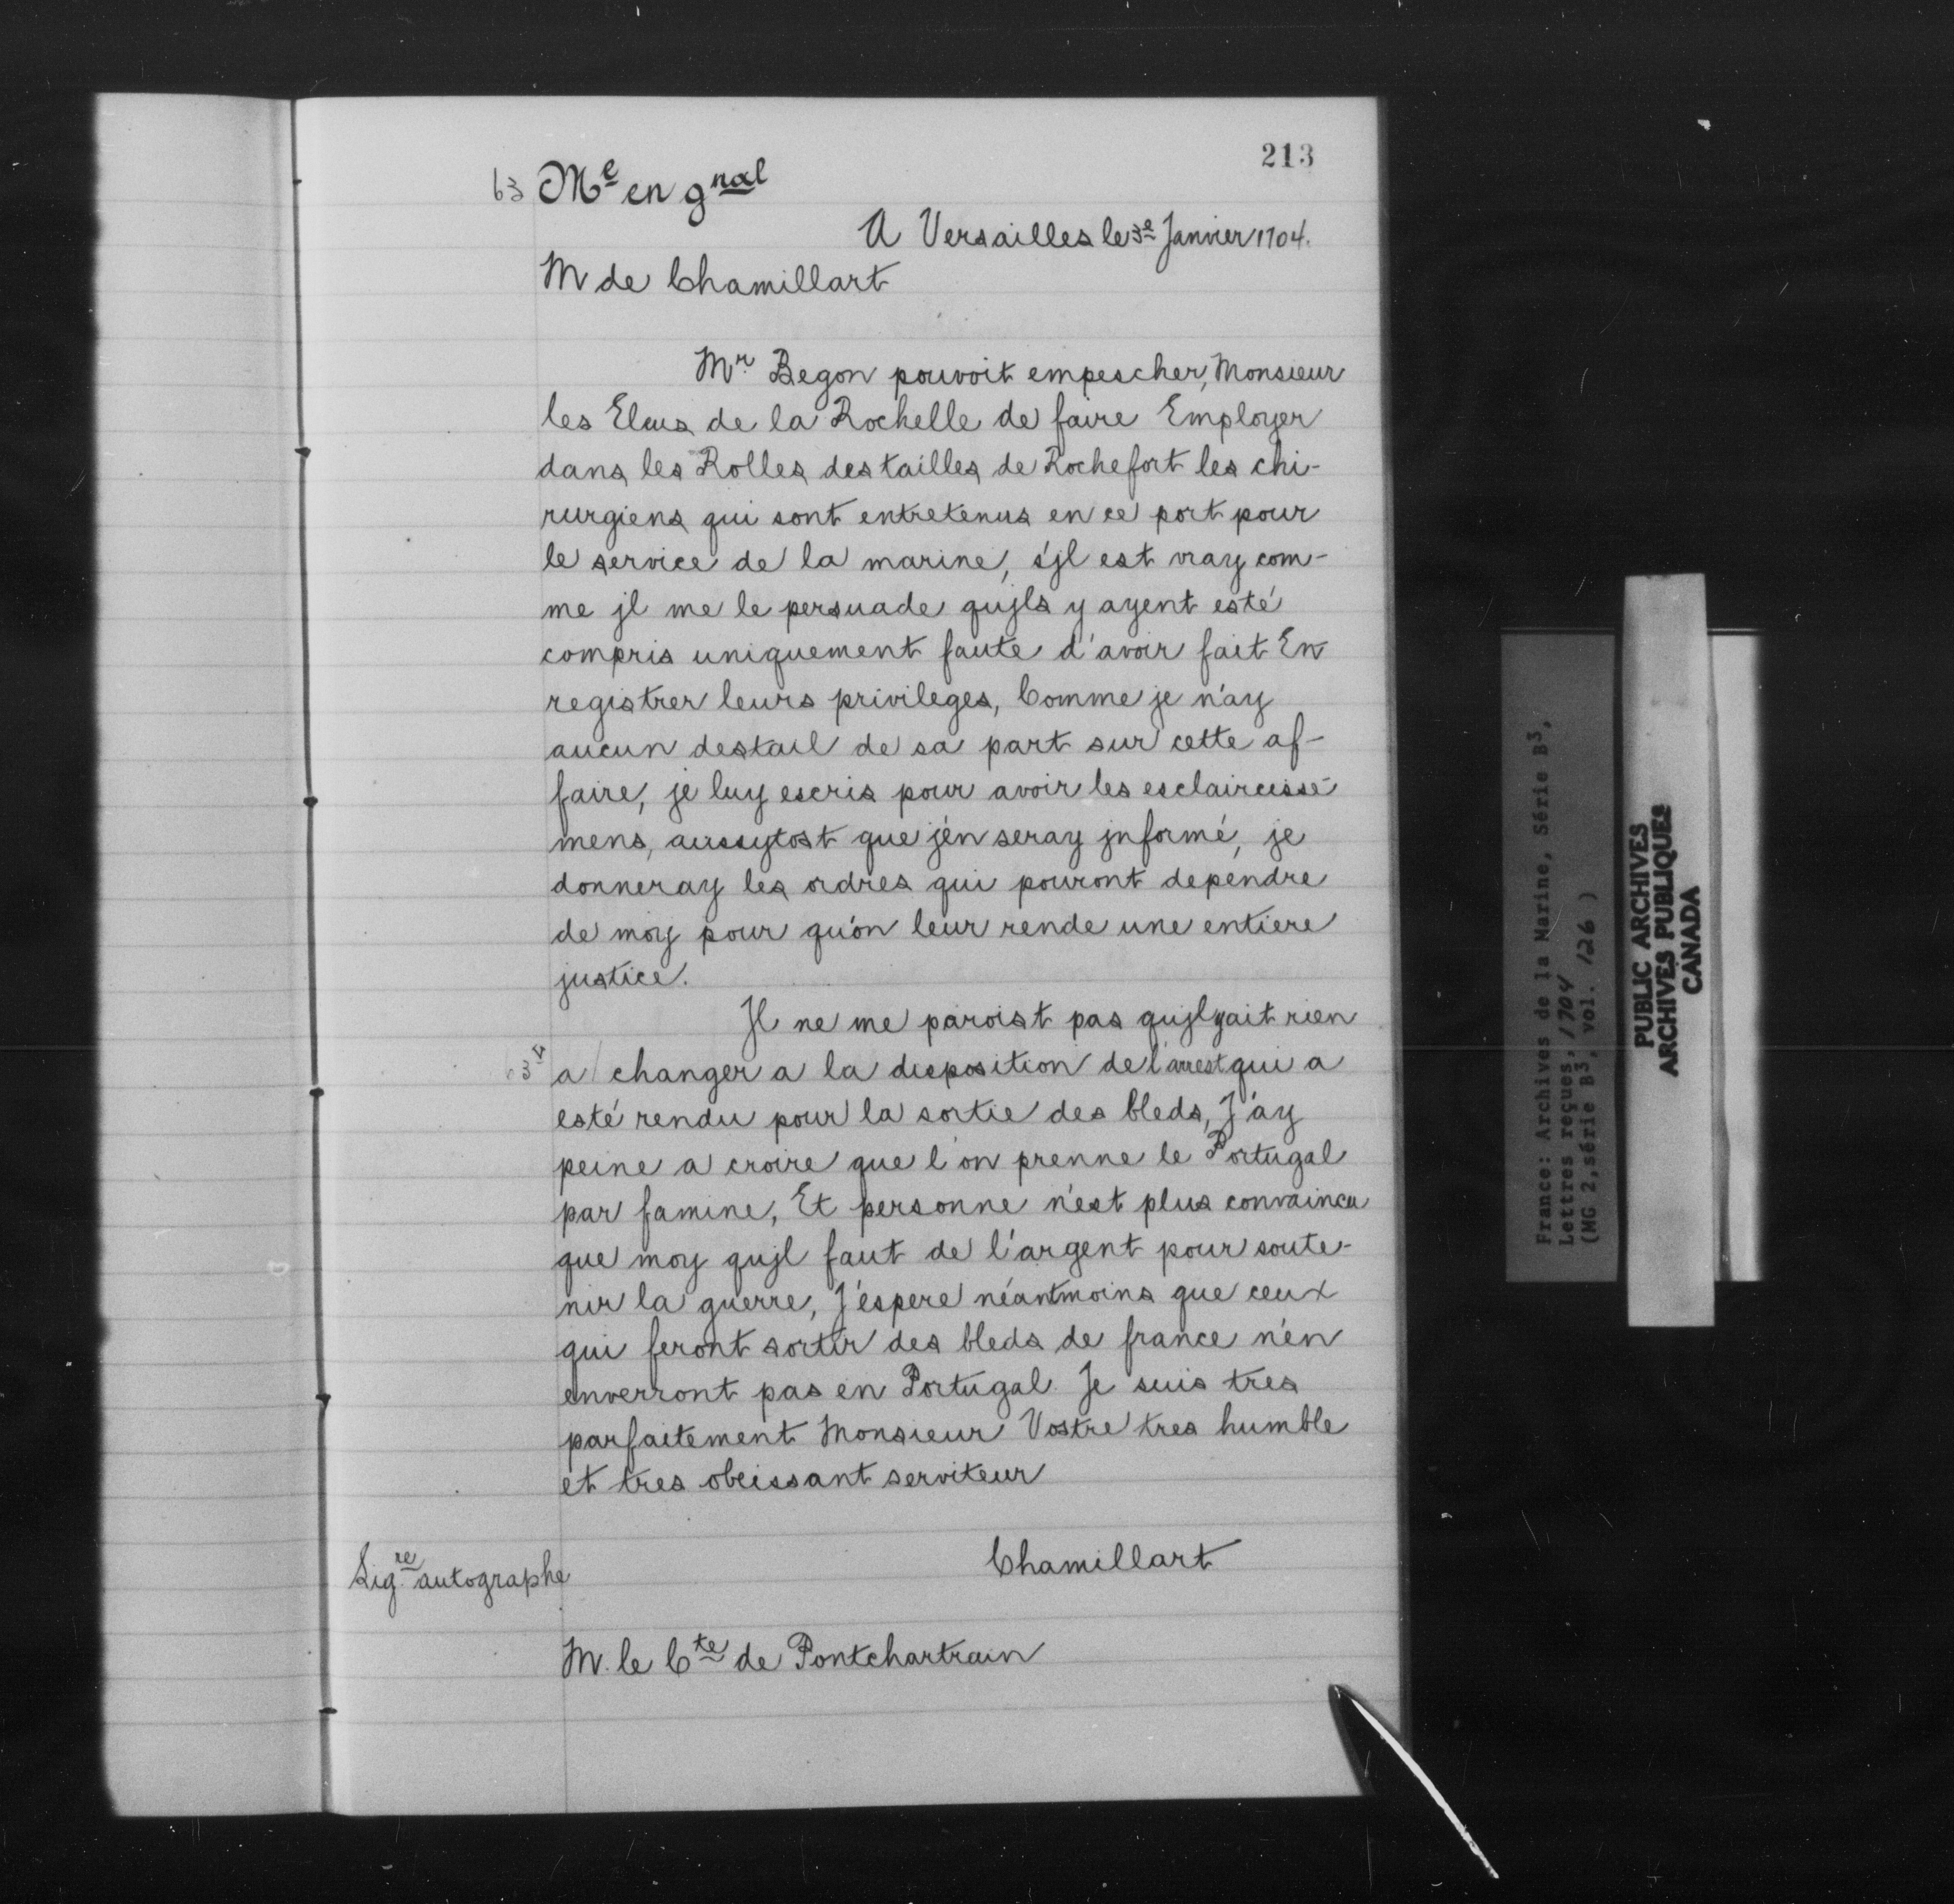 213
63 Me en gnal
A Versailles le 3e Janvier 1704.
M de Chamillart
Mr Begon pouvoit empescher, Monsieur
les Elus de la Rochelle de faire Employer
dans les Rolles des tailles de Rochefort les chi-
rurgiens qui sont entretenus en ce port pour
le service de la marine, s'jl est vray com-
me jl me le persuade qujls y ayent esté
compris uniquement faute d'avoir fait En
registrer leurs privileges, Comme je n'ay
aucun destail de sa part sur cette af-
faire, je luy escris pour avoir les esclaircisse-
mens, aussytost que j'en seray jnformé, je
donneray les ordres qui pouront dependre
de moy pour qu'on leur rende une entiere
justice.
Jl ne me paroist pas qujl y ait rien
63 v a / changer a la disposition de l'arrest qui a
esté rendu pour la sortie des bleds, J'ay
peine a croire que l'on prenne le Portugal
par famine, Et personne n'est plus convaincu
que moy qujl faut de l'argent pour soute-
nir la guerre, J'espere néantmoins que ceux
qui feront sortir des bleds de france n'en
enverront pas en Portugal. Je suis tres
parfaitement Monsieur Vostre tres humble
et tres obeissant serviteur
Chamillart
Sigre autographe
M. le Cte de Pontchartrain
France: Archives de la Marine, Série B3,
Lettres reçues, 1704
(MG 2, série B3, vol. 126 )
PUBLIC ARCHIVES
ARCHIVES PUBLIQUES
CANADA